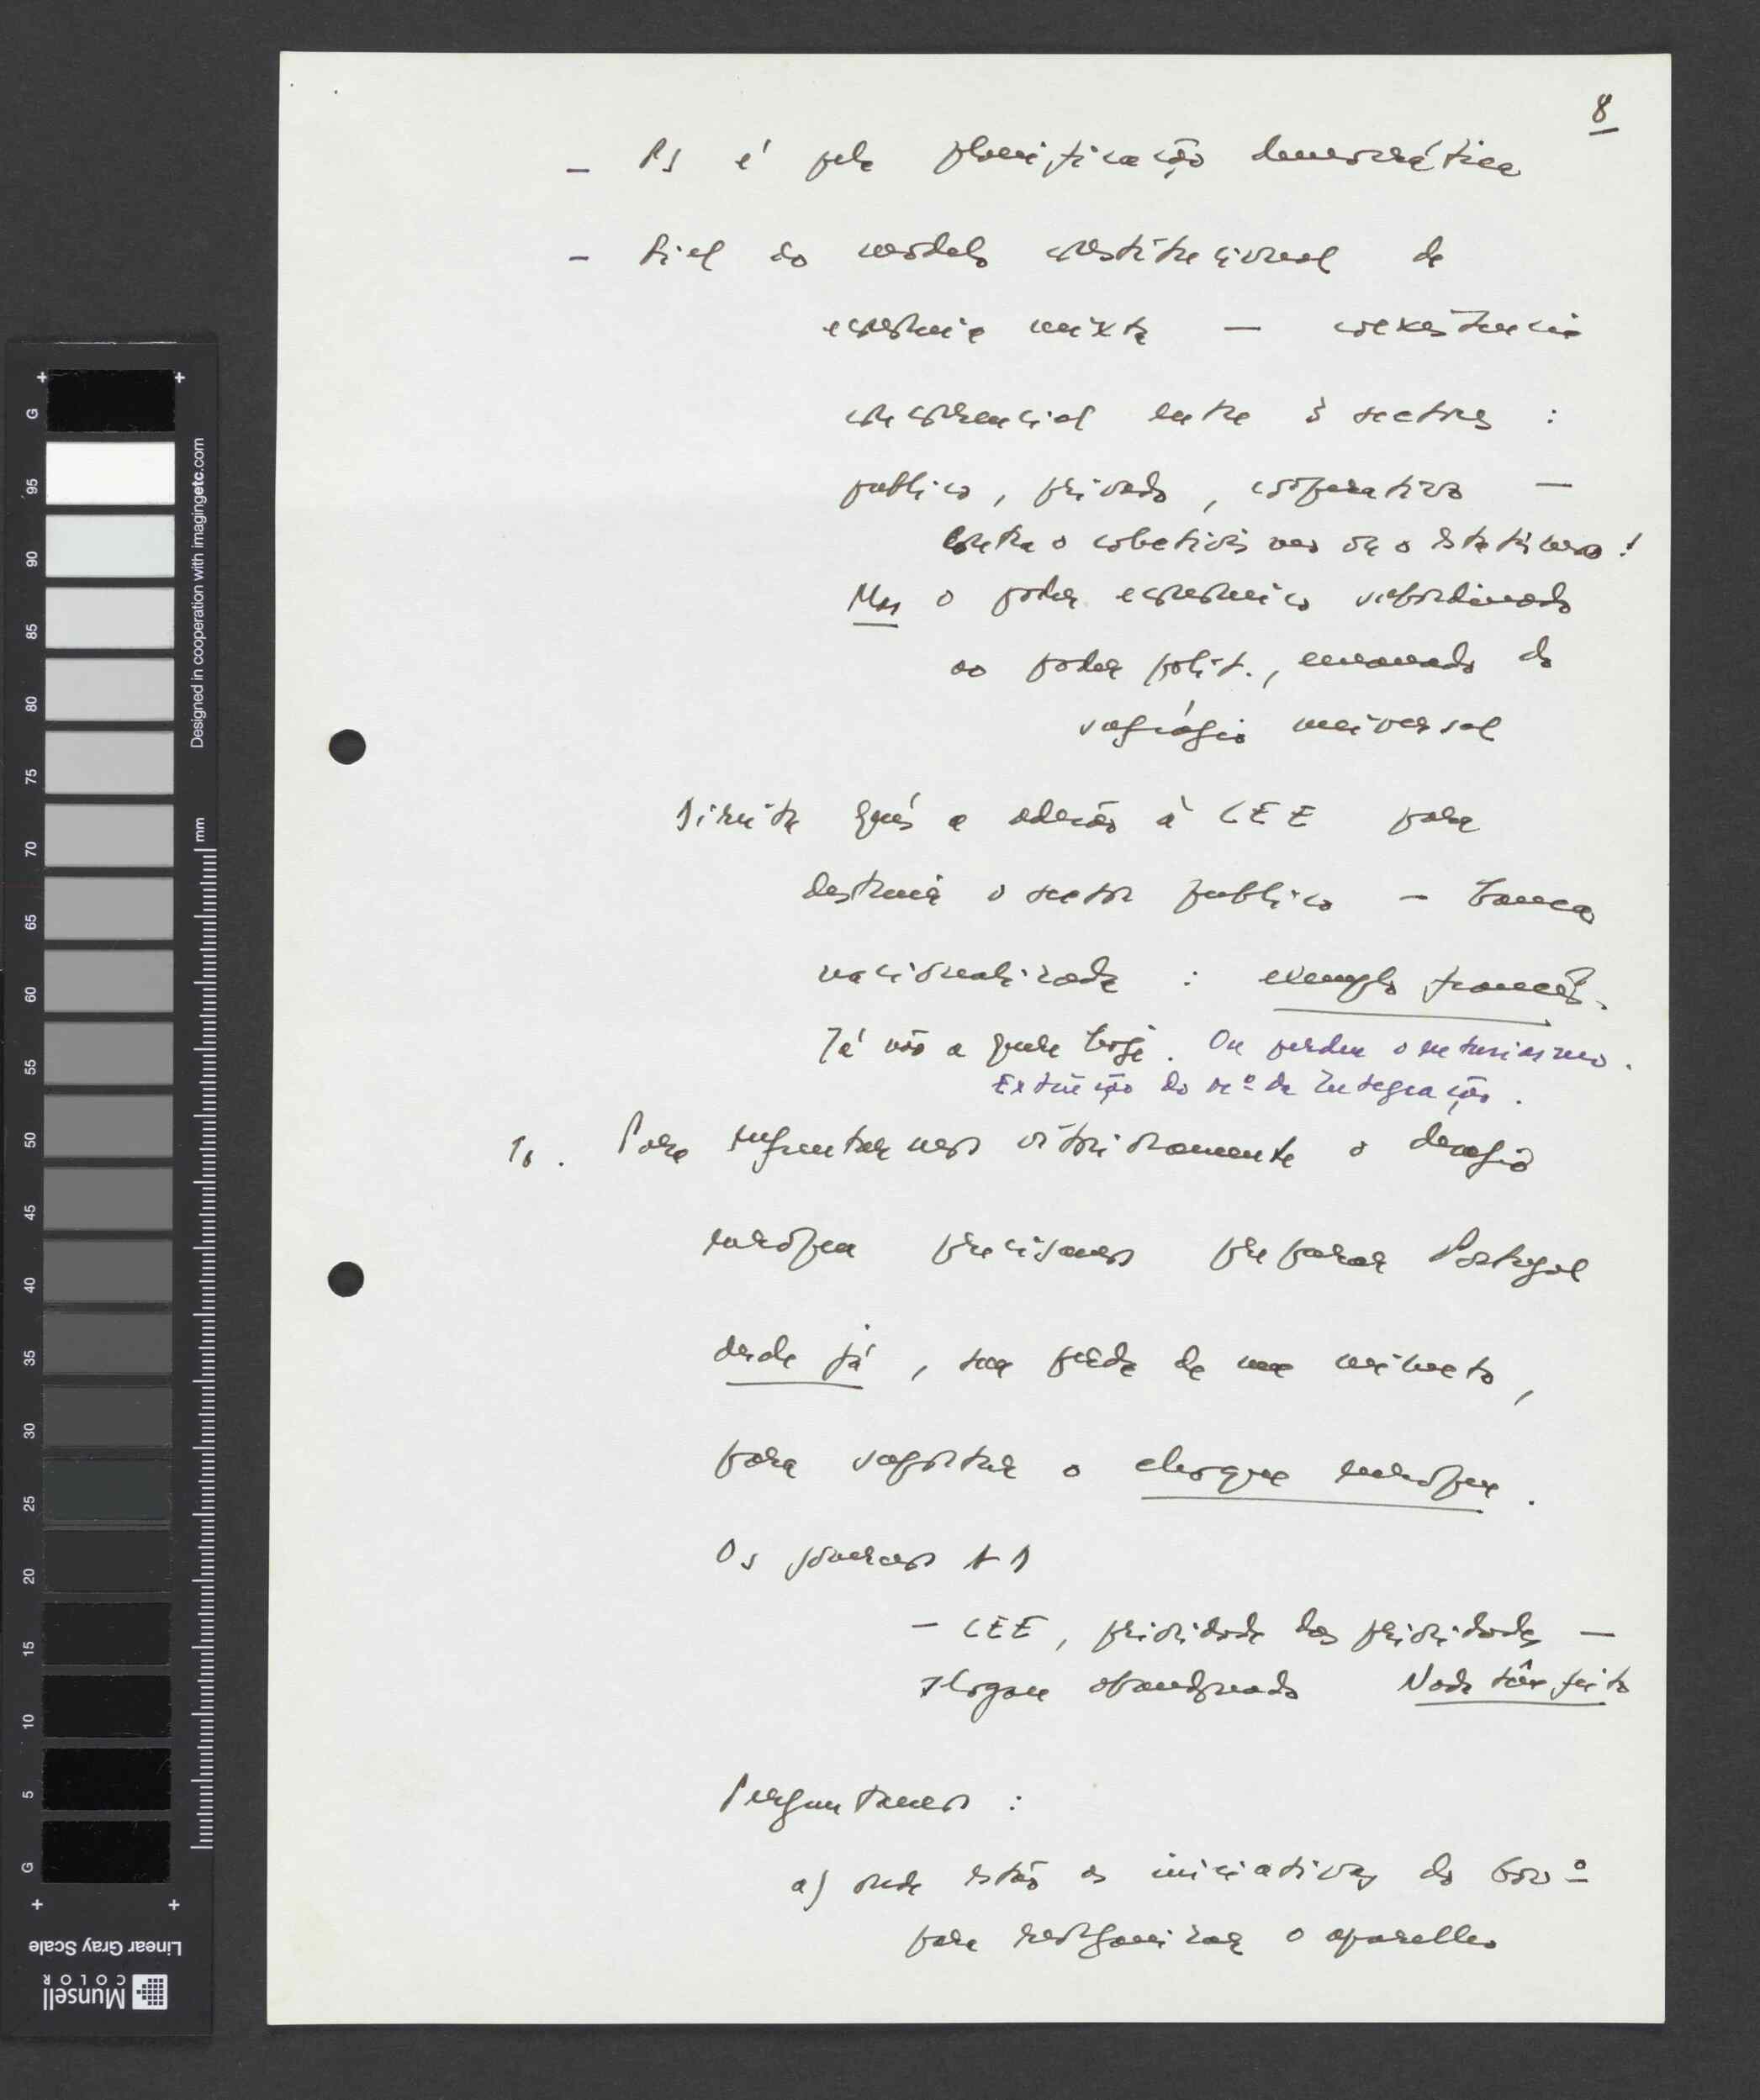 8
- PS é pela planificação democrática
- Fiel ao modelo constitucional de
economia mixta — coexistência
concorrencial entre 3 sectores :
publico, privado, cooperativo —
contra o colectivismo ou o estatismo !
Mas o poder economico subordinado
ao poder polit., emanado do
sufrágio universal
Direita quis a adesão à CEE para
destruir o sector publico - banca
nacionalizada : exemplo francês.
Já não a quer hoje. Ou perdeu o entusiasmo.
Extinção do mº da Integração.
10. Para enfrentarmos vitoriosamente o desafio
europeu precisamos preparar Portugal
desde já, sem perda de um minuto,
para suportar o choque europeu.
Os governos AD
- CEE, prioridade das prioridades —
slogan abandonado Nada têm feito
Perguntamos :
a) onde estão as iniciativas do Govº
para reorganizar o aparelho
Designed in cooperation with imagingetc.com
mm
G 95 90 85 80 75 70 65 60 55 50 45 40 35 30 25 20 15 10 5 G
Linear Gray Scale
Munsell
COLOR